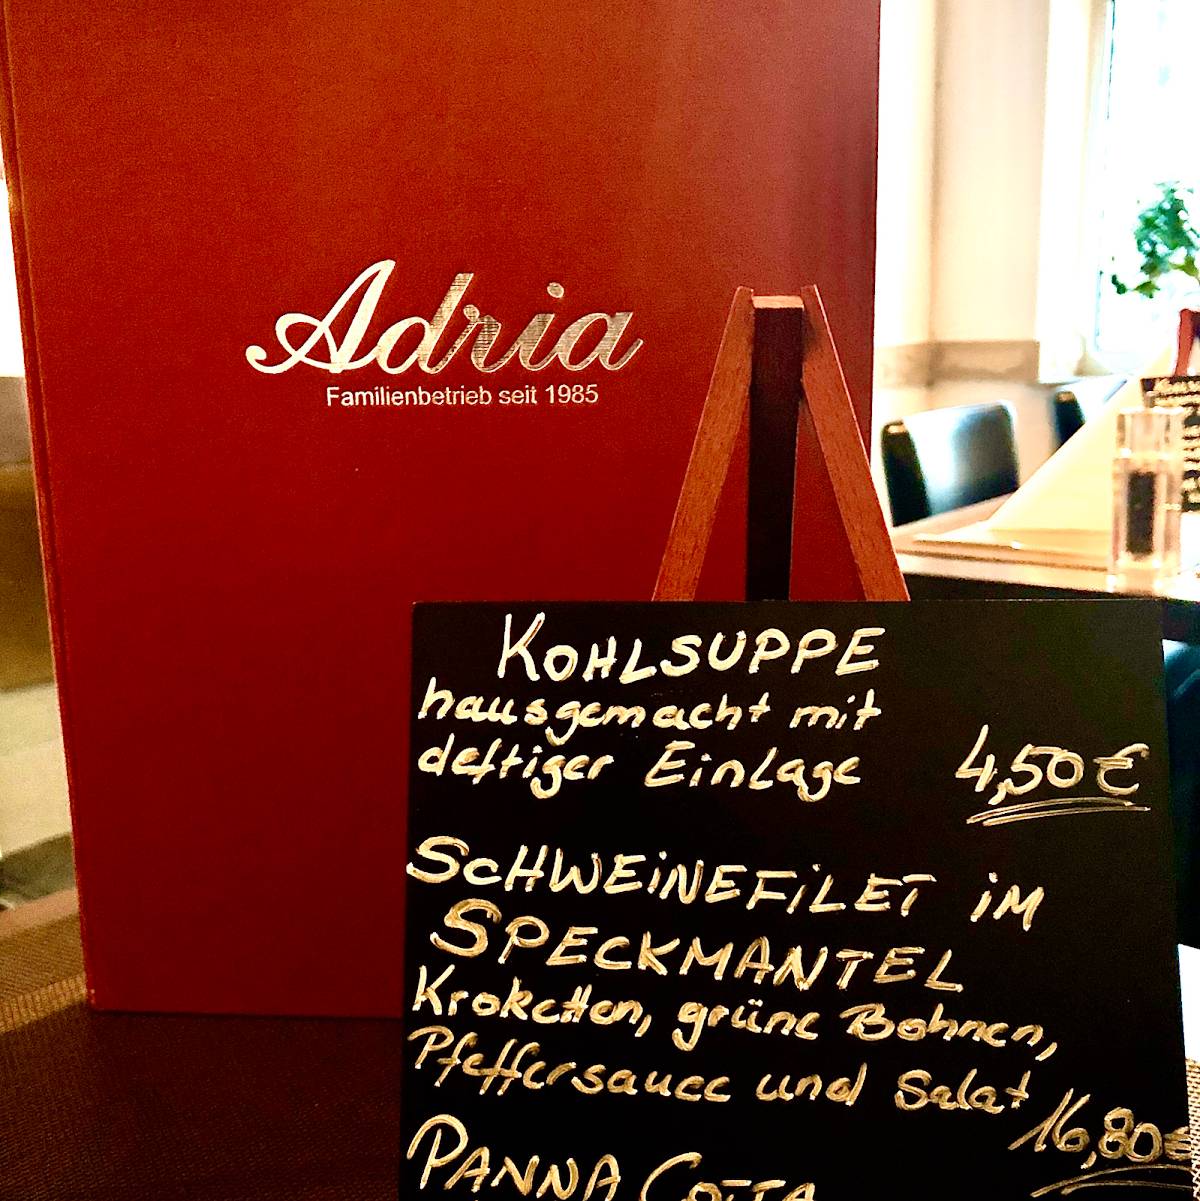 Adria
Familienbetrieb seit 1985
KOHLSUPPE
hausgemacht mit
deftiger Einlage 4,50€
SCHWEINEFILET iM
SPECKMANTEL
Kroketten, grüne Bohnen,
Pfeffersauce und Salat 16,80€
PANNA COTTA